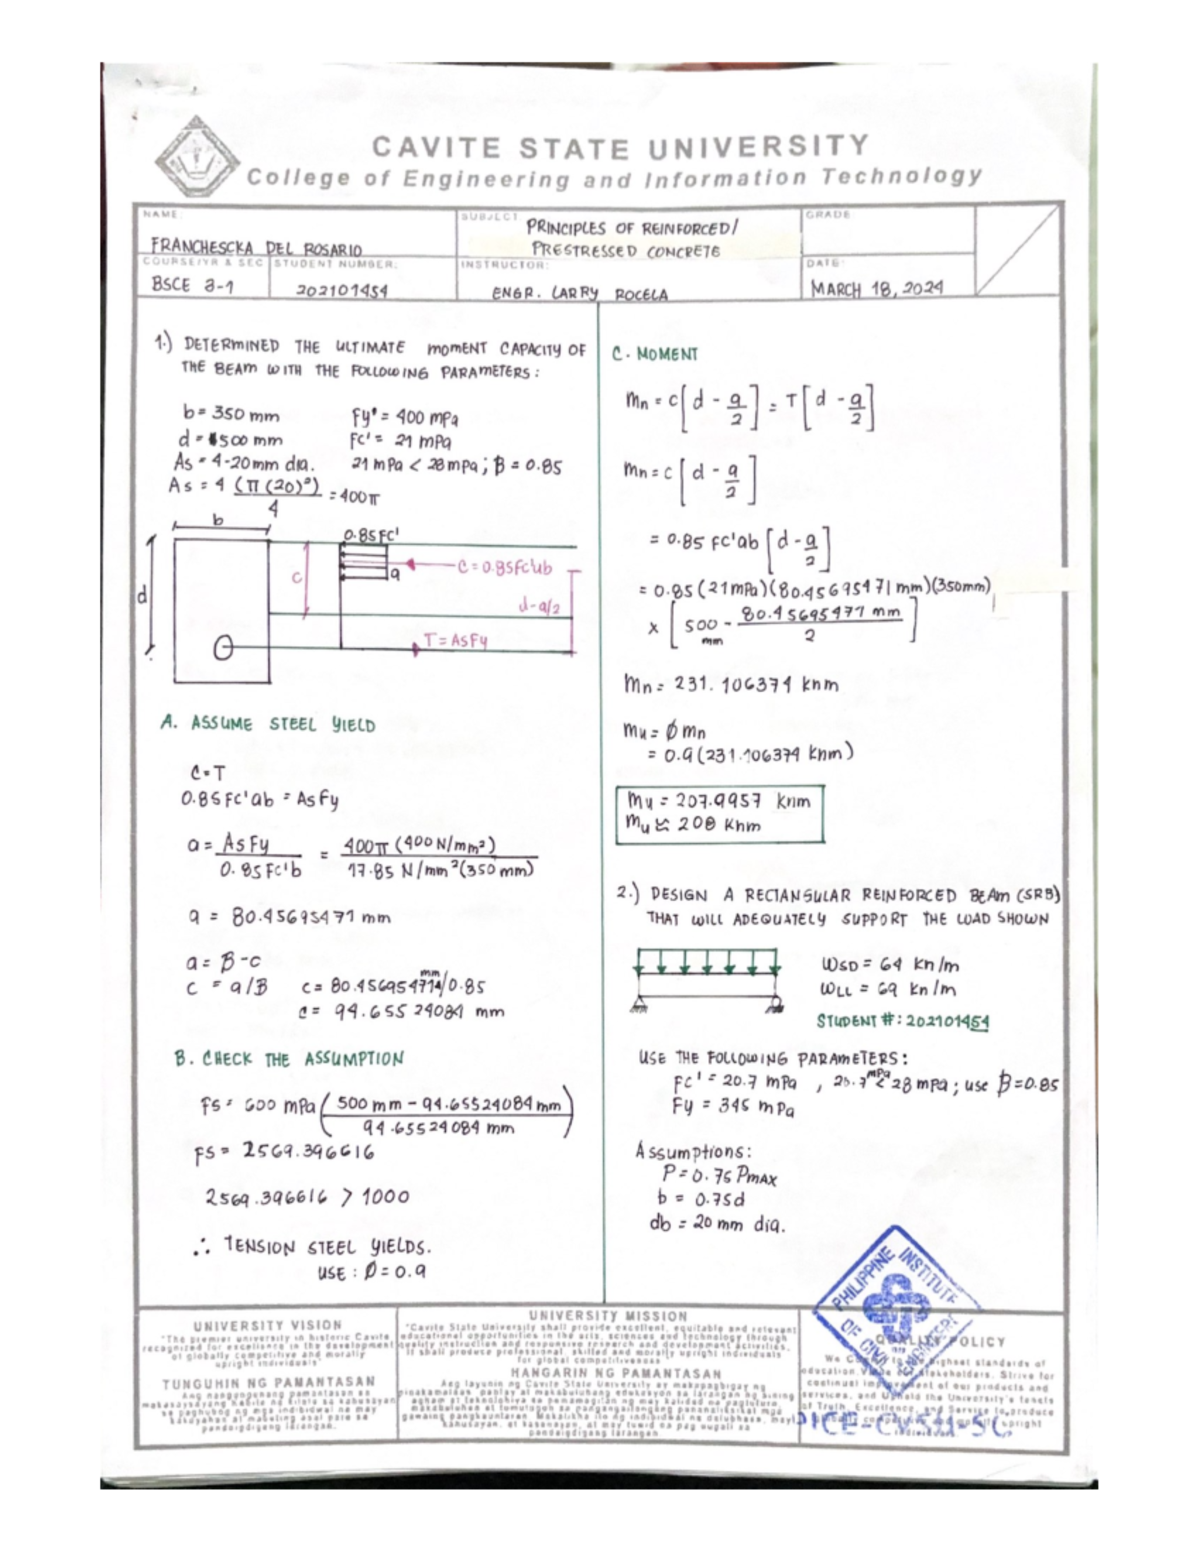 CAVITE STATE UNIVERSITY
College of Engineering and Information Technology
NAME:
FRANCHESCKA DEL ROSARIO
SUBJECT
PRINCIPLES OF REINFORCED/
PRESTRESSED CONCRETE
GRADE
COURSE/YR & SEC
BSCE 3-1
STUDENT NUMBER:
202101454
INSTRUCTOR:
ENGR. LARRY ROCELA
DATE:
MARCH 18, 2024
1.) DETERMINED THE ULTIMATE MOMENT CAPACITY OF
THE BEAM WITH THE FOLLOWING PARAMETERS:
b = 350 mm Fy' = 400 mPa
d = 500 mm Fc' = 21 mPa
As = 4-20mm dia. 21 mPa < 28 mPa ; β = 0.85
As = 4 (π (20)²) / 4 = 400π
b
d
c
0.85FC'
a
C = 0.85fc'ab
d-a/2
T = AsFy
A. ASSUME STEEL YIELD
C=T
0.85 Fc'ab = As Fy
a = AsFy / 0.85Fc'b = 400π (400 N/mm²) / 17.85 N/mm² (350 mm)
a = 80.45695471 mm
a = β-c
c = a/β c = 80.45695471 mm/0.85
c = 94.65524084 mm
B. CHECK THE ASSUMPTION
Fs = 600 mPa (500 mm - 94.65524084 mm / 94.65524084 mm)
FS = 2569.396616
2569.396616 > 1000
∴ TENSION STEEL YIELDS.
USE : Ø = 0.9
C. MOMENT
Mn = c[d - a/2] = T[d - a/2]
Mn = c[d - a/2]
= 0.85 fc'ab [d - a/2]
= 0.85 (21mPa)(80.45695471 mm)(350mm)
x [500 mm - 80.45695471 mm / 2]
Mn = 231.106374 knm
Mu = Ø Mn
= 0.9 (231.106374 knm)
Mu = 207.9957 knm
Mu ≈ 208 knm
2.) DESIGN A RECTANGULAR REINFORCED BEAM (SRB)
THAT WILL ADEQUATELY SUPPORT THE LOAD SHOWN
WSD = 64 kn/m
WLL = 69 kn/m
STUDENT #: 202101454
USE THE FOLLOWING PARAMETERS:
Fc' = 20.7 mPa , 20.7 mPa < 28 mPa ; use β=0.85
Fy = 345 mPa
Assumptions:
P = 0.75 PMAX
b = 0.75d
db = 20 mm dia.
PHILIPPINE INSTITUTE
OF CIVIL ENGINEERS
UNIVERSITY VISION
"The premier university in historic Cavite
recognized for excellence in the development
of globally competitive and morally
upright individuals"
TUNGUHIN NG PAMANTASAN
Ang nangungunang pamantasan sa
makasaysayang Kabite na kilala sa kahusayan
sa paghubog ng mga indibidwal na may
pandaigdigang
UNIVERSITY MISSION
"Cavite State University shall provide excellent, equitable and relevant
educational opportunities in the arts, sciences and technology through
quality instruction and responsive research and development activities.
It shall produce professional, skilled and morally upright individuals
for global competitiveness
HANGARIN NG PAMANTASAN
Ang layunin ng Cavite State University ay makapagbigay ng
QUALITY POLICY
We highest standards of
education stakeholders. Strive for
continual improvement of our products and
services, and Uphold the University's tenets
of Truth, Excellence, and Service to produce
upright
PICE-CVSU-SC